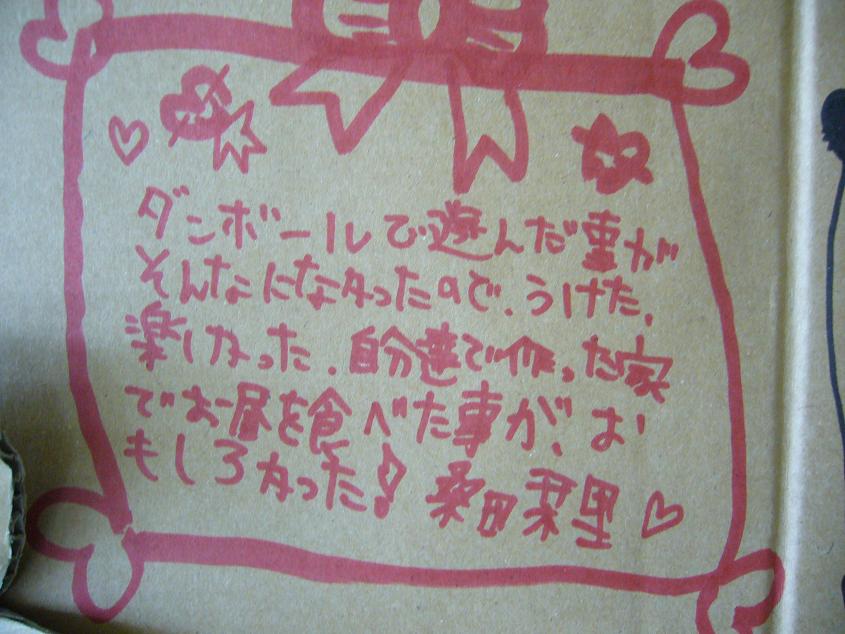 ダンボールで遊んだ事が
そんなになかったので、うけた、
楽しかった、自分達で作った家
でお昼を食べた事が、お
もしろかった! 桑田栞里